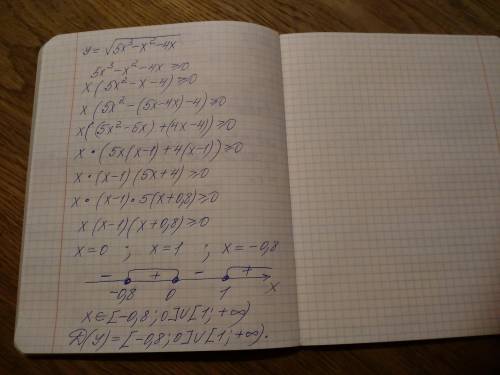 y = √5x³-x²-4x
5x³-x²-4x ≥0
x(5x²-x-4)≥0
x(5x²-(5x-4x)-4)≥0
x((5x²-5x)+(4x-4))≥0
x•(5x(x-1)+4(x-1))≥0
x•(x-1)(5x+4)≥0
x•(x-1)•5(x+0,8)≥0
x(x-1)(x+0,8)≥0
x=0 ; x=1 ; x=-0,8
- + - +
-0,8 0 1 x
x∈[-0,8; 0]∪[1; +∞)
D(y)=[-0,8; 0]∪[1; +∞).